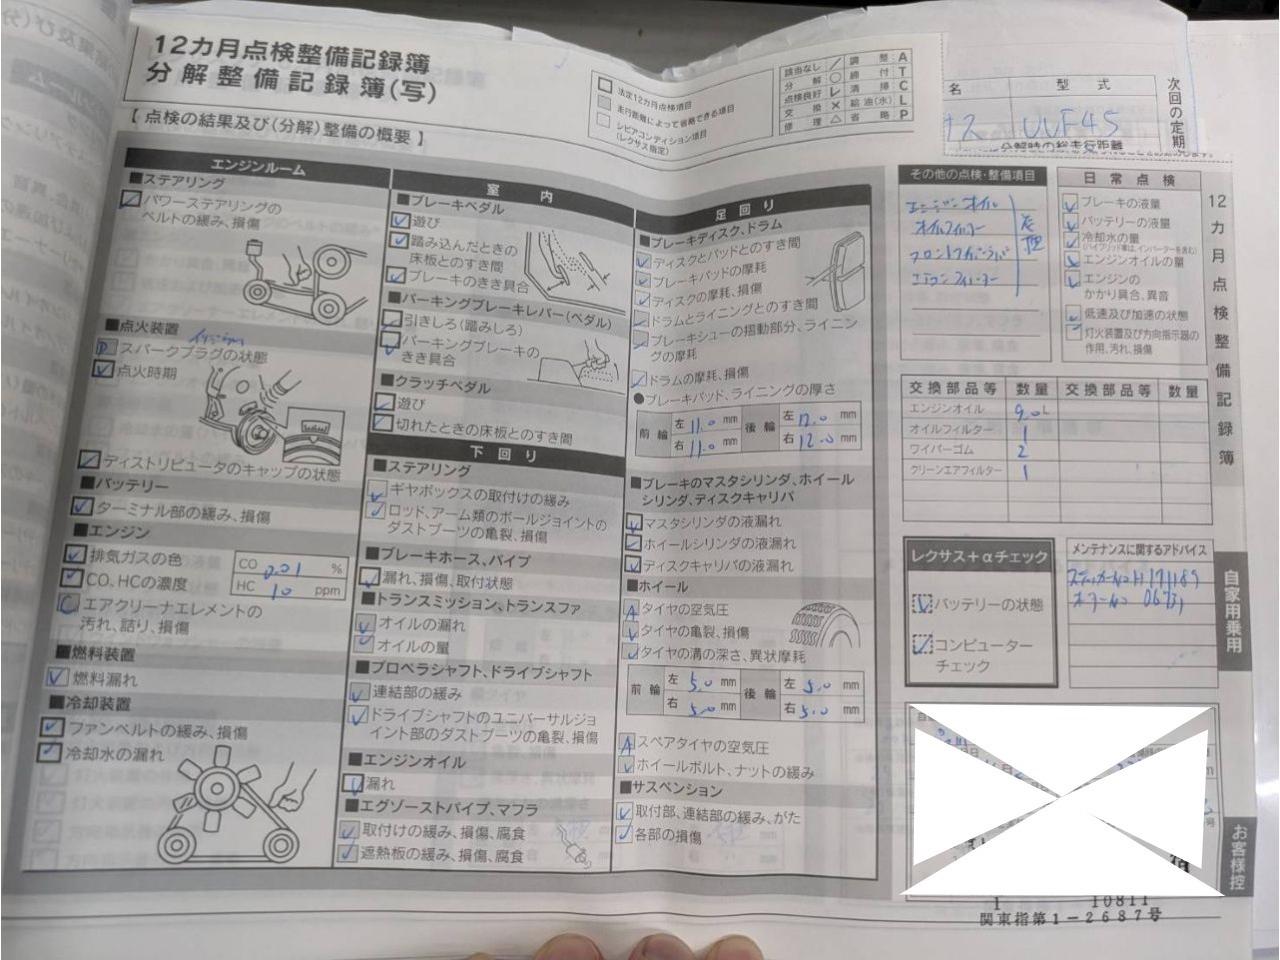 12カ月点検整備記録簿
分解整備記録簿(写)
【 点検の結果及び(分解)整備の概要 】
法定12カ月点検項目
走行距離によって省略できる項目
シビアコンディション項目
(レクサス指定)
該当なし ／ 調整 A
分解 ○ 締付 T
点検良好 レ 清掃 C
交換 × 給油(水) L
修理 △ 省略 P
名 型式
UUF45
分解時の総走行距離
次回の定期
エンジンルーム
■ステアリング
パワーステアリングの
ベルトの緩み、損傷
■点火装置
P スパークプラグの状態
点火時期
ディストリビュータのキャップの状態
■バッテリー
ターミナル部の緩み、損傷
■エンジン
排気ガスの色
CO、HCの濃度
CO 0.01 %
HC 10 ppm
C エアクリーナエレメントの
汚れ、詰り、損傷
■燃料装置
燃料漏れ
■冷却装置
ファンベルトの緩み、損傷
冷却水の漏れ
室内
■ブレーキペダル
遊び
踏み込んだときの
床板とのすき間
ブレーキのきき具合
■パーキングブレーキレバー(ペダル)
引きしろ(踏みしろ)
パーキングブレーキの
きき具合
■クラッチペダル
遊び
切れたときの床板とのすき間
下回り
■ステアリング
ギヤボックスの取付けの緩み
ロッド、アーム類のボールジョイントの
ダストブーツの亀裂、損傷
■ブレーキホース、パイプ
漏れ、損傷、取付状態
■トランスミッション、トランスファ
オイルの漏れ
オイルの量
■プロペラシャフト、ドライブシャフト
連結部の緩み
ドライブシャフトのユニバーサルジョ
イント部のダストブーツの亀裂、損傷
■エンジンオイル
漏れ
■エグゾーストパイプ、マフラ
取付けの緩み、損傷、腐食
遮熱板の緩み、損傷、腐食
足回り
■ブレーキディスク、ドラム
ディスクとパッドとのすき間
ブレーキパッドの摩耗
ディスクの摩耗、損傷
ドラムとライニングとのすき間
ブレーキシューの摺動部分、ライニン
グの摩耗
ドラムの摩耗、損傷
●ブレーキパッド、ライニングの厚さ
前輪 左 11.0 mm 後輪 左 12.0 mm
右 11.0 mm 右 12.0 mm
■ブレーキのマスタシリンダ、ホイール
シリンダ、ディスクキャリパ
マスタシリンダの液漏れ
ホイールシリンダの液漏れ
ディスクキャリパの液漏れ
■ホイール
A タイヤの空気圧
タイヤの亀裂、損傷
タイヤの溝の深さ、異状摩耗
前輪 左 5.0 mm 後輪 左 5.0 mm
右 5.0 mm 右 5.0 mm
A スペアタイヤの空気圧
ホイールボルト、ナットの緩み
■サスペンション
取付部、連結部の緩み、がた
各部の損傷
その他の点検・整備項目
エンジンオイル
オイルフィルター
日常点検
ブレーキの液量
バッテリーの液量
冷却水の量
(ハイブリッド車は、インバーターを含む)
エンジンオイルの量
エンジンの
かかり具合、異音
低速及び加速の状態
灯火装置及び方向指示器の
作用、汚れ、損傷
交換部品等 数量 交換部品等 数量
エンジンオイル 9.0L
オイルフィルター 1
ワイパーゴム 2
クリーンエアフィルター 1
レクサス+αチェック
バッテリーの状態
コンピューター
チェック
メンテナンスに関するアドバイス
12カ月点検整備記録簿
自家用乗用
お客様控
1 10811
関東指第1-2687号